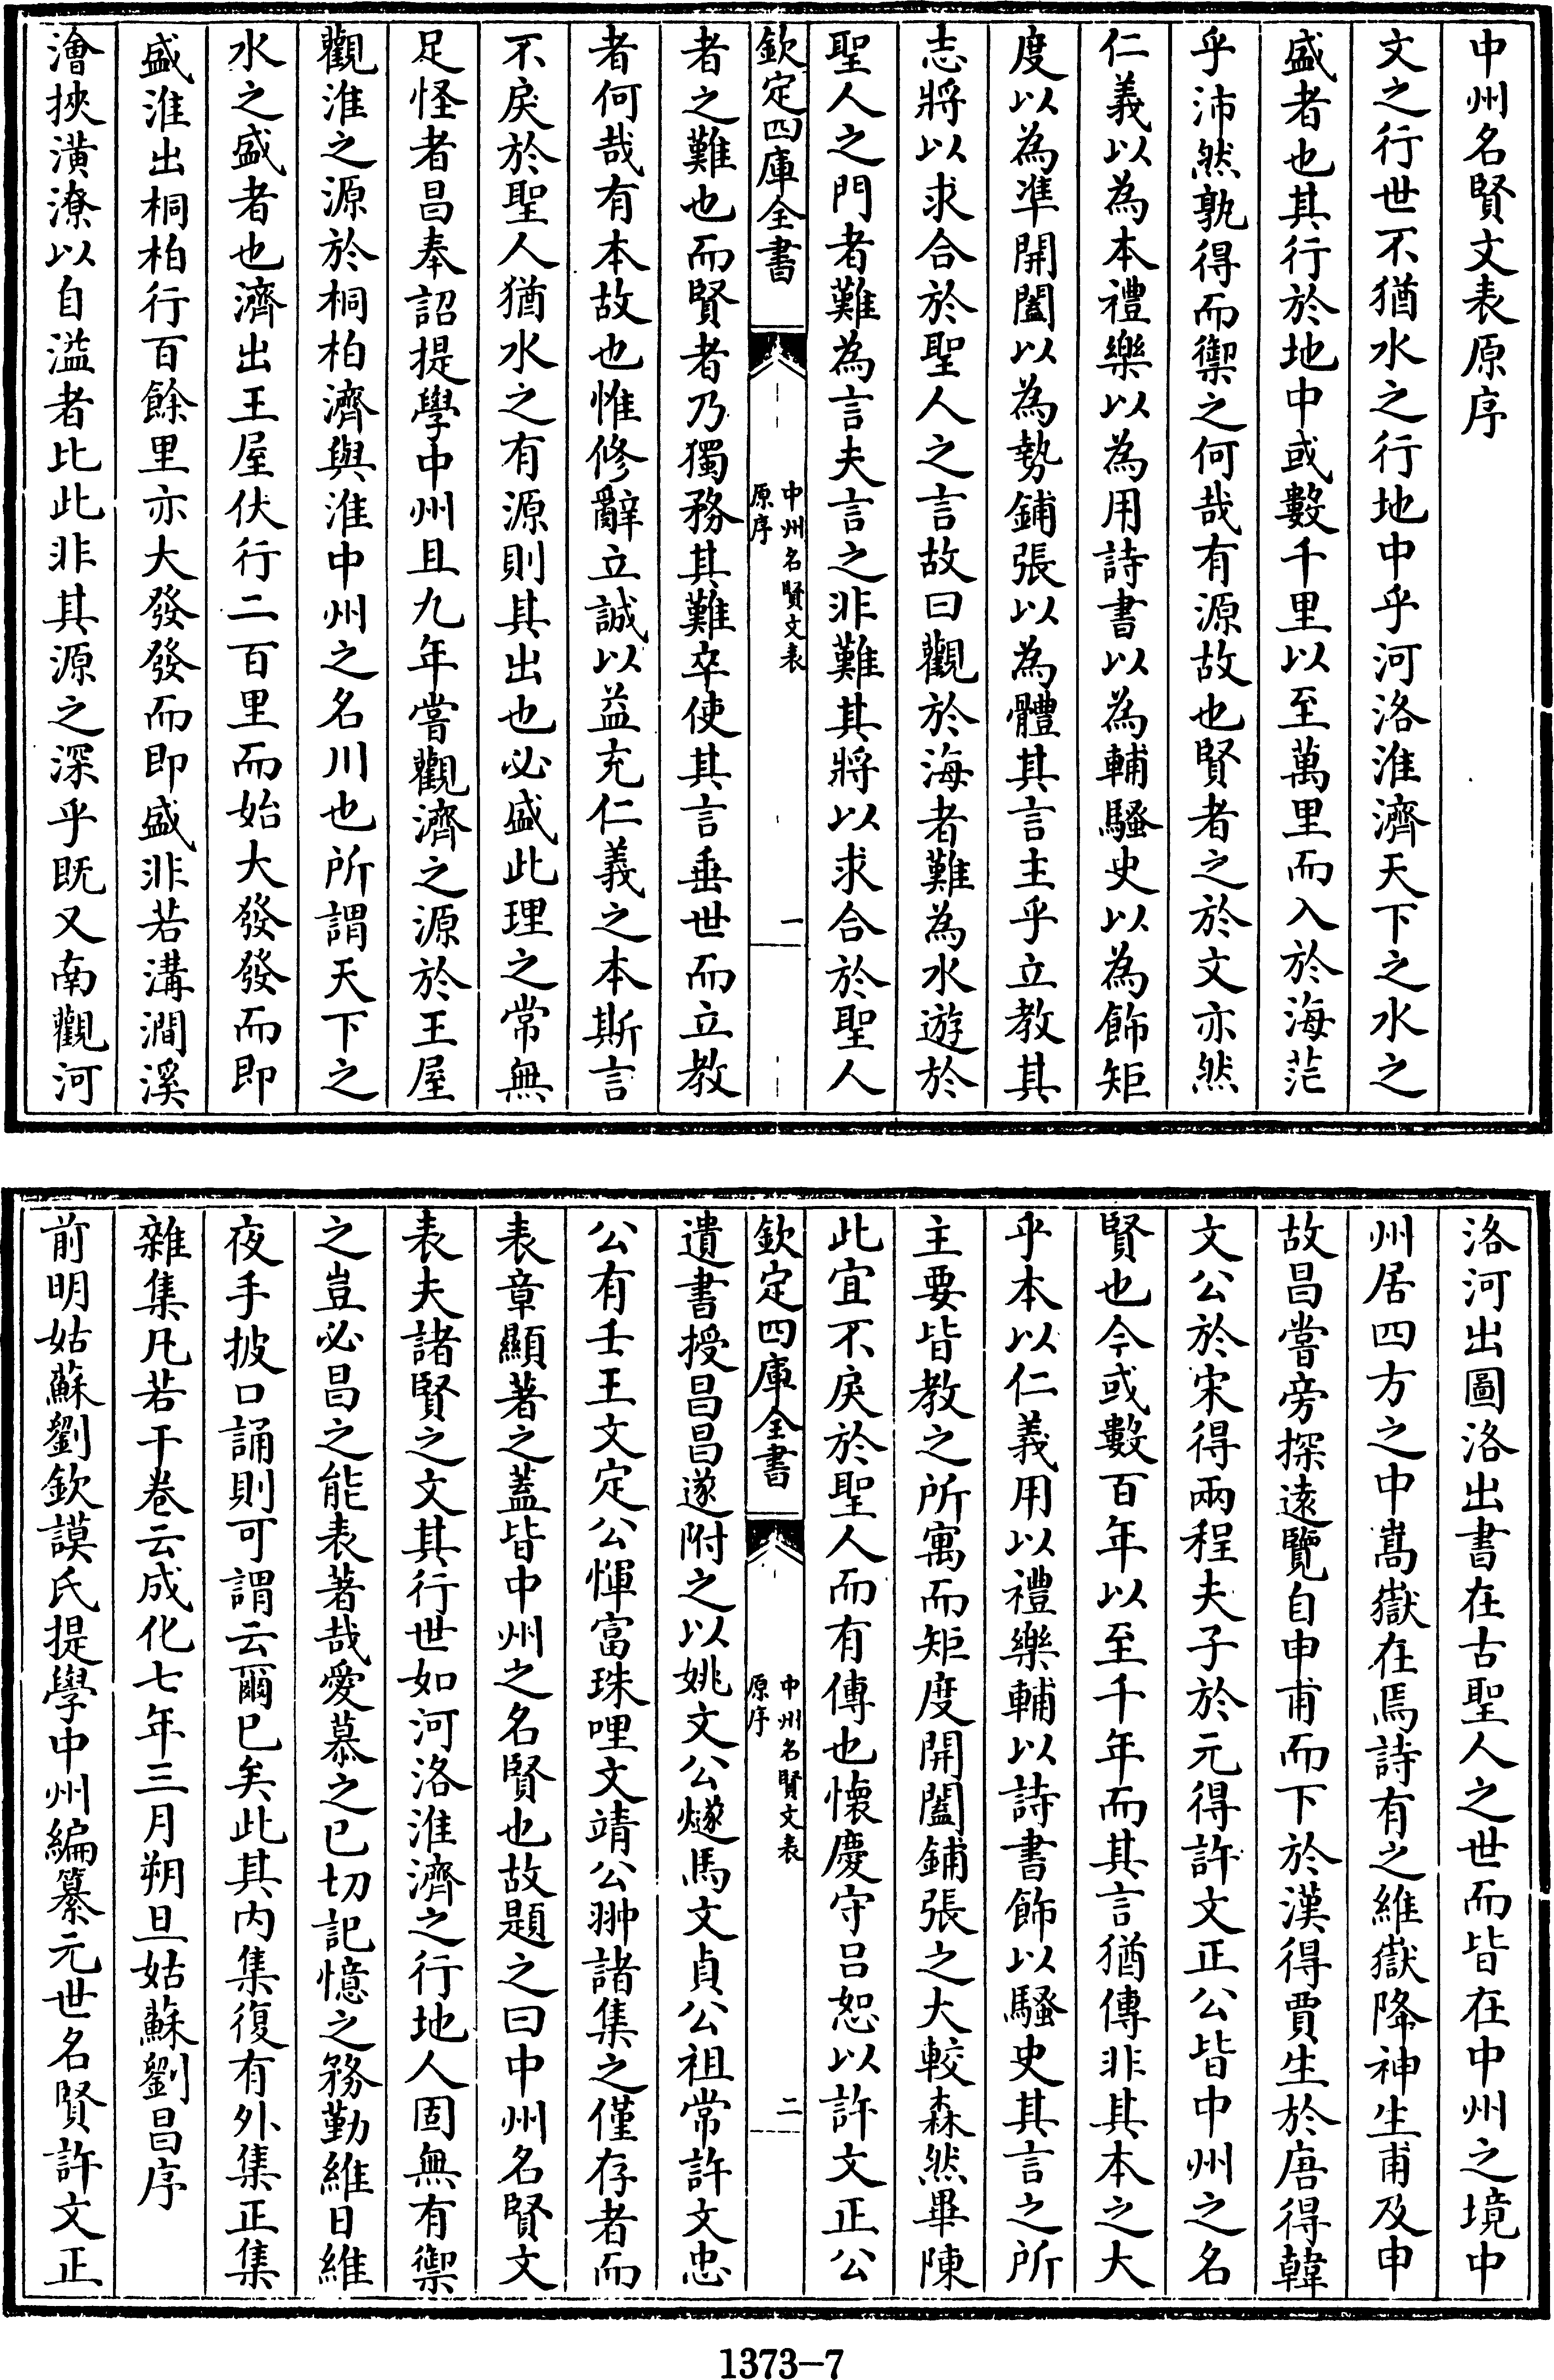 中州名賢文表原序
文之行世不猶水之行地中乎河洛淮濟天下之水之
盛者也其行於地中或數千里以至萬里而入於海茫
乎沛然孰得而禦之何哉有源故也賢者之於文亦然
仁義以為本禮樂以為用詩書以為輔騷史以為飾矩
度以為準開闔以為勢鋪張以為體其言主乎立教其
志將以求合於聖人之言故曰觀於海者難為水遊於
聖人之門者難為言夫言之非難其將以求合於聖人
欽定四庫全書
中州名賢文表
原序
一
者之難也而賢者乃獨務其難卒使其言垂世而立教
者何哉有本故也惟修辭立誠以益充仁義之本斯言
不戾於聖人猶水之有源則其出也必盛此理之常無
足怪者昌奉詔提學中州且九年嘗觀濟之源於王屋
觀淮之源於桐柏濟與淮中州之名川也所謂天下之
水之盛者也濟出王屋伏行二百里而始大發發而即
盛淮出桐柏行百餘里亦大發發而即盛非若溝澗溪
澮挾潢潦以自溢者比此非其源之深乎既又南觀河
洛河出圖洛出書在古聖人之世而皆在中州之境中
州居四方之中嵩嶽在焉詩有之維嶽降神生甫及申
故昌嘗旁探遠覽自申甫而下於漢得賈生於唐得韓
文公於宋得兩程夫子於元得許文正公皆中州之名
賢也今或數百年以至千年而其言猶傳非其本之大
乎本以仁義用以禮樂輔以詩書飾以騷史其言之所
主要皆教之所寓而矩度開闔鋪張之大較森然畢陳
此宜不戾於聖人而有傳也懷慶守呂恕以許文正公
欽定四庫全書
中州名賢文表
原序
二
遺書授昌昌遂附之以姚文公燧馬文貞公祖常許文忠
公有壬王文定公惲富珠哩文靖公翀諸集之僅存者而
表章顯著之蓋皆中州之名賢也故題之曰中州名賢文
表夫諸賢之文其行世如河洛淮濟之行地人固無有禦
之豈必昌之能表著哉愛慕之已切記憶之務勤維日維
夜手披口誦則可謂云爾已矣此其內集復有外集正集
雜集凡若干卷云成化七年三月朔旦姑蘇劉昌序
前明姑蘇劉欽謨氏提學中州編纂元世名賢許文正
1373-7